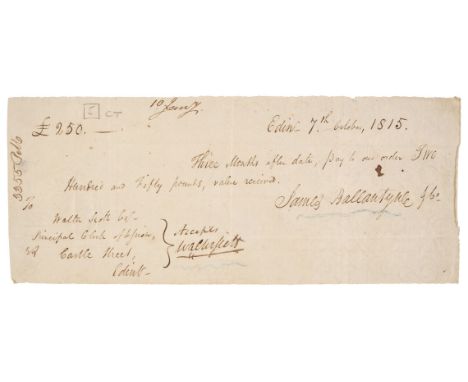 10 Jany.
[5] CT
£250.—
Edinr. 7th October, 1815.
Three Months after date, pay to our order Two
Hundred and Fifty pounds, value received.
James Ballantyne & Co.
To
Walter Scott Esqr.
Principal Clerk of Session,
Castle Street,
Edinr.
Accepts
Walter Scott